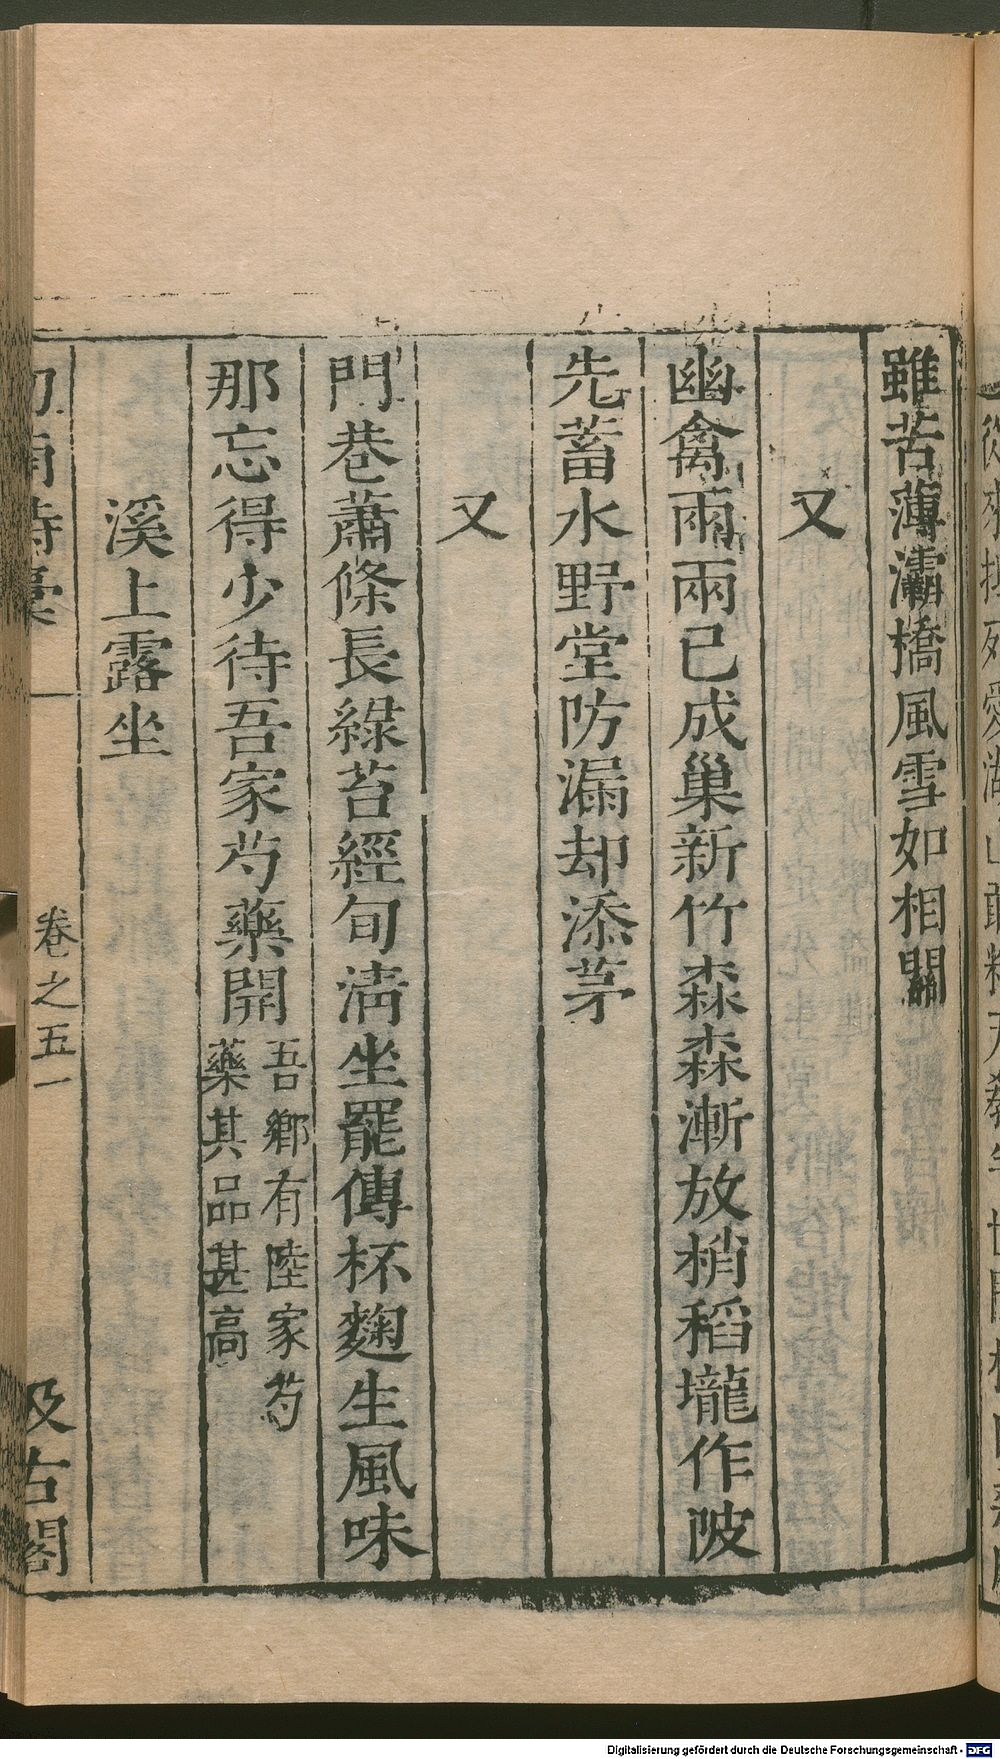 雖苦薄灞橋風雪如相關
又
幽禽兩兩已成巢新竹森森漸放梢稻壠作陂
先蓄水野堂防漏却添茅
又
門巷蕭條長綠苔經旬淸坐罷傳杯麴生風味
那忘得少待吾家芍藥開
吾鄉有陸家芍
藥其品甚高
溪上露坐
卷之五一
汲古閣
Digitalisierung gefördert durch die Deutsche Forschungsgemeinschaft - DFG